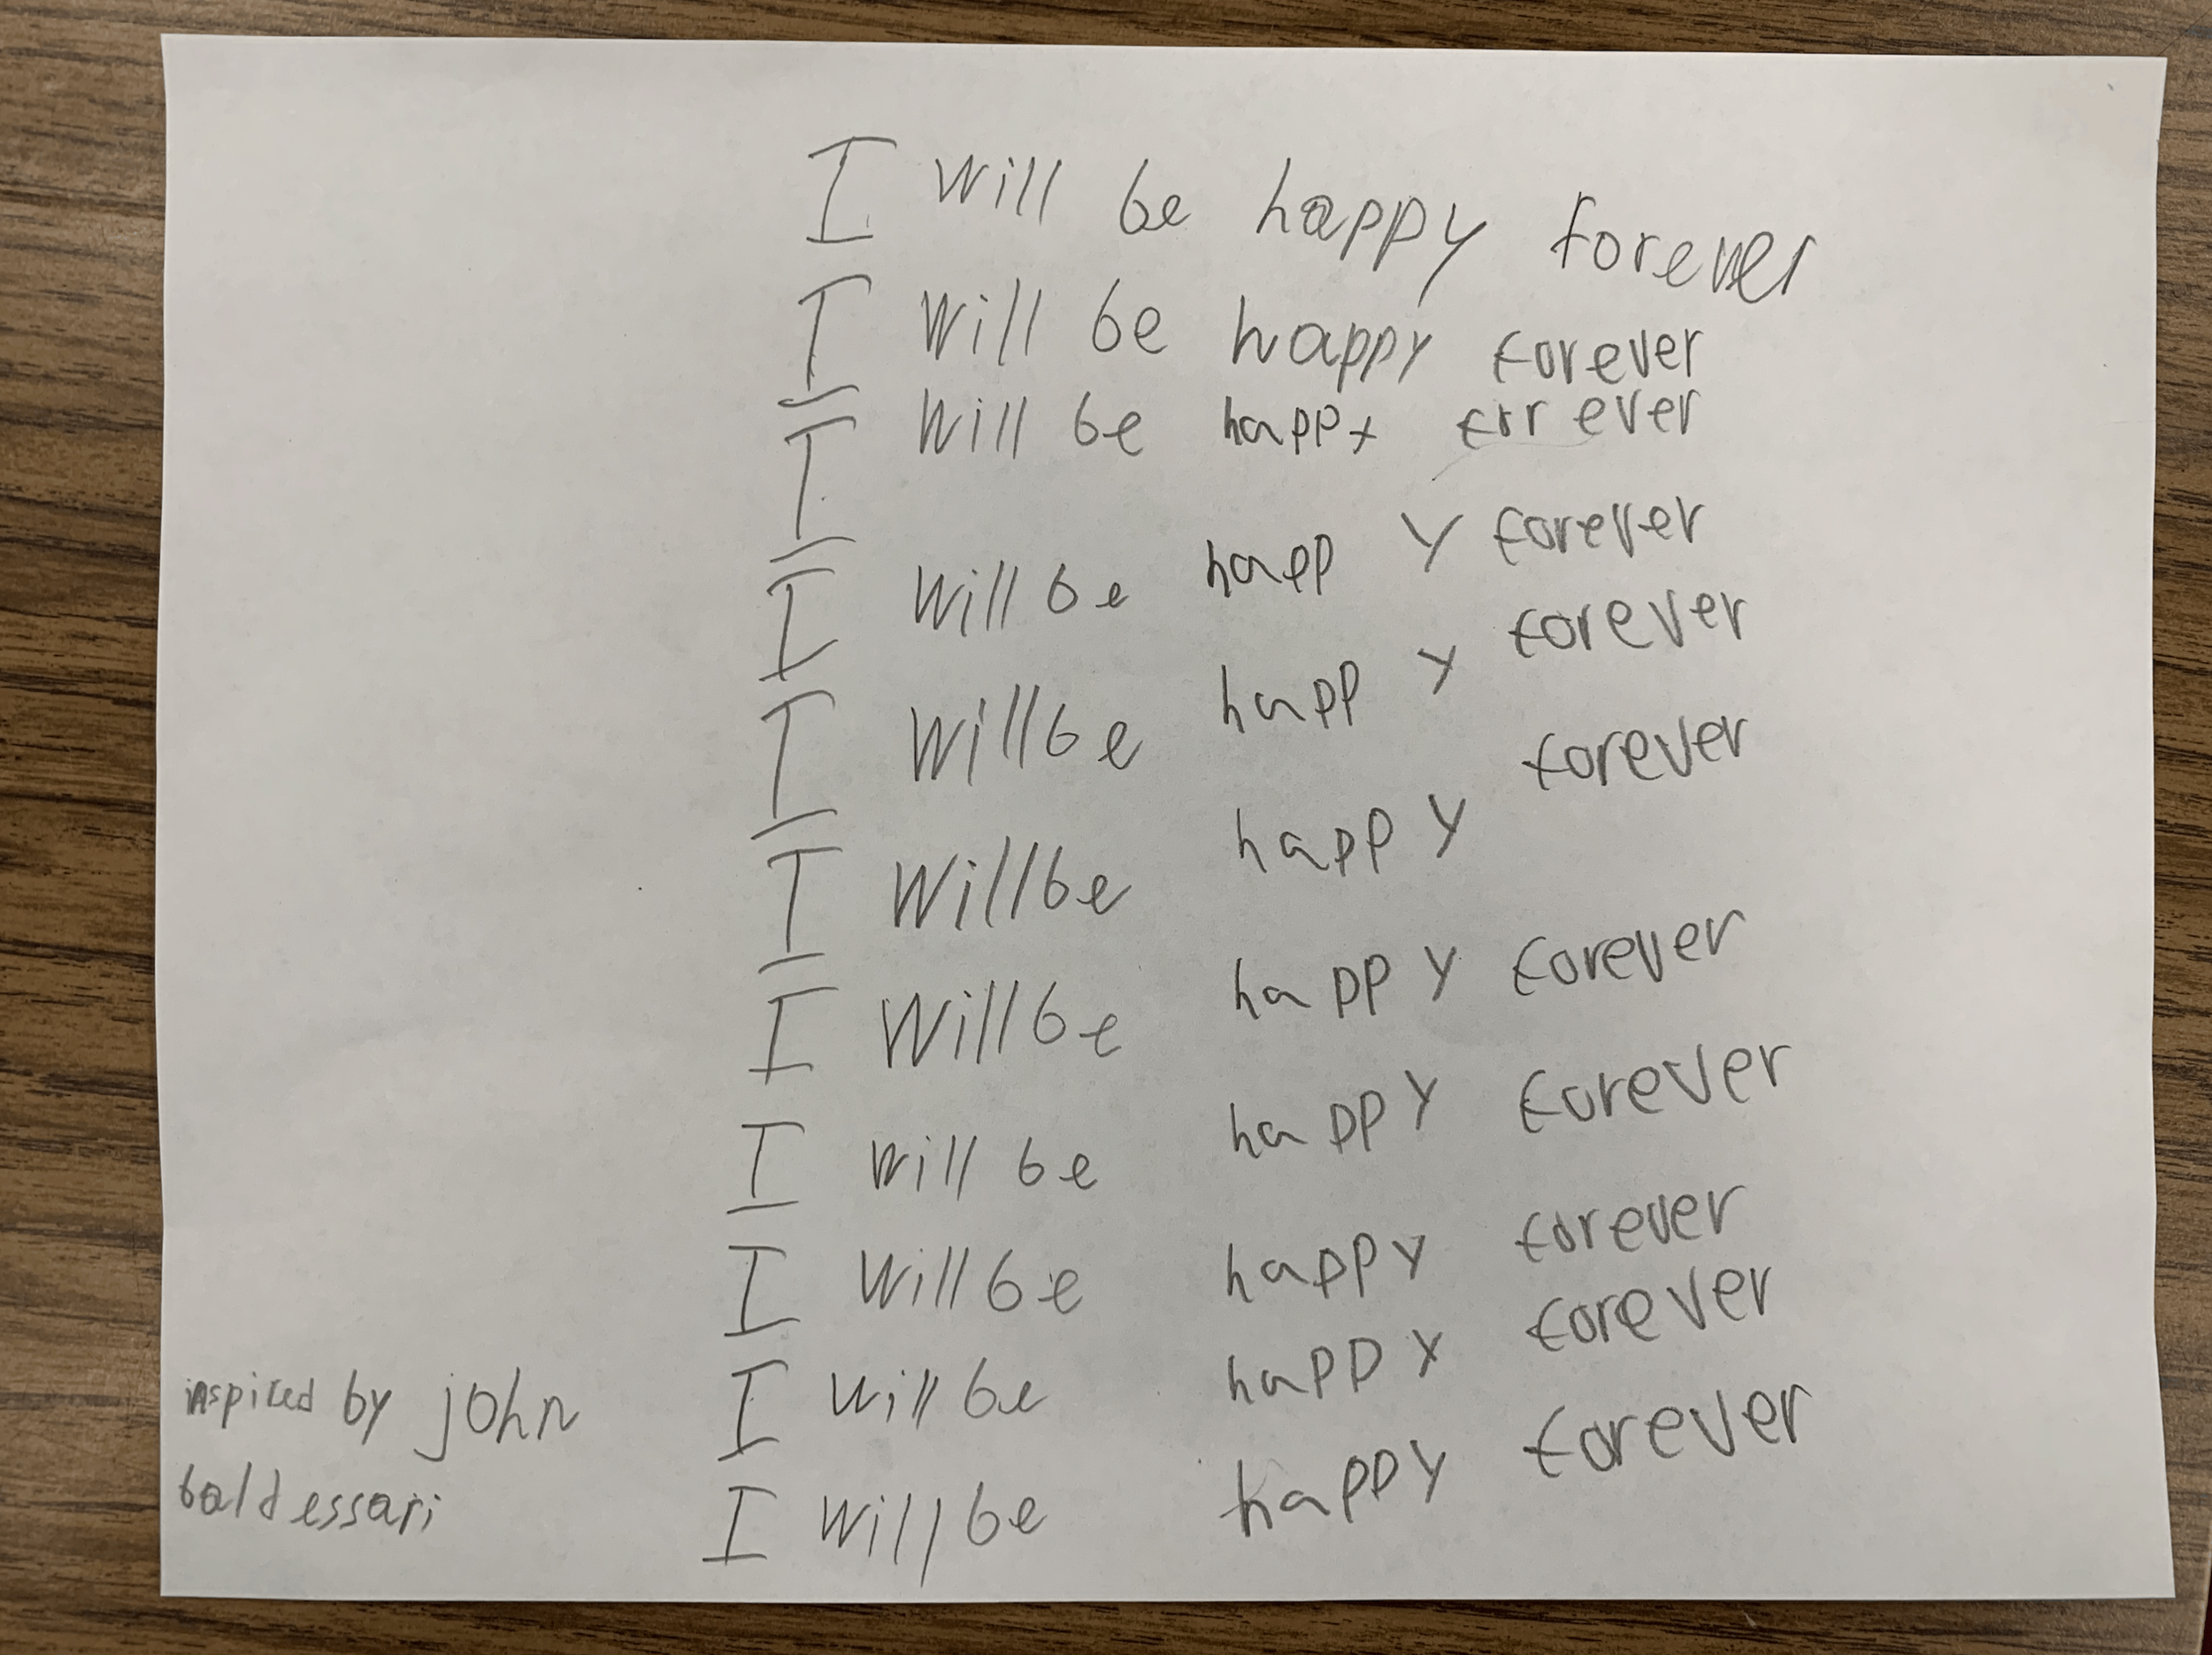 I will be happy forever
I will be happy forever
I will be happy forever
I will be happy forever
I will be happy forever
I will be happy forever
I will be happy forever
I will be happy forever
I will be happy forever
I will be happy forever
I will be happy forever
inspired by john
baldessari